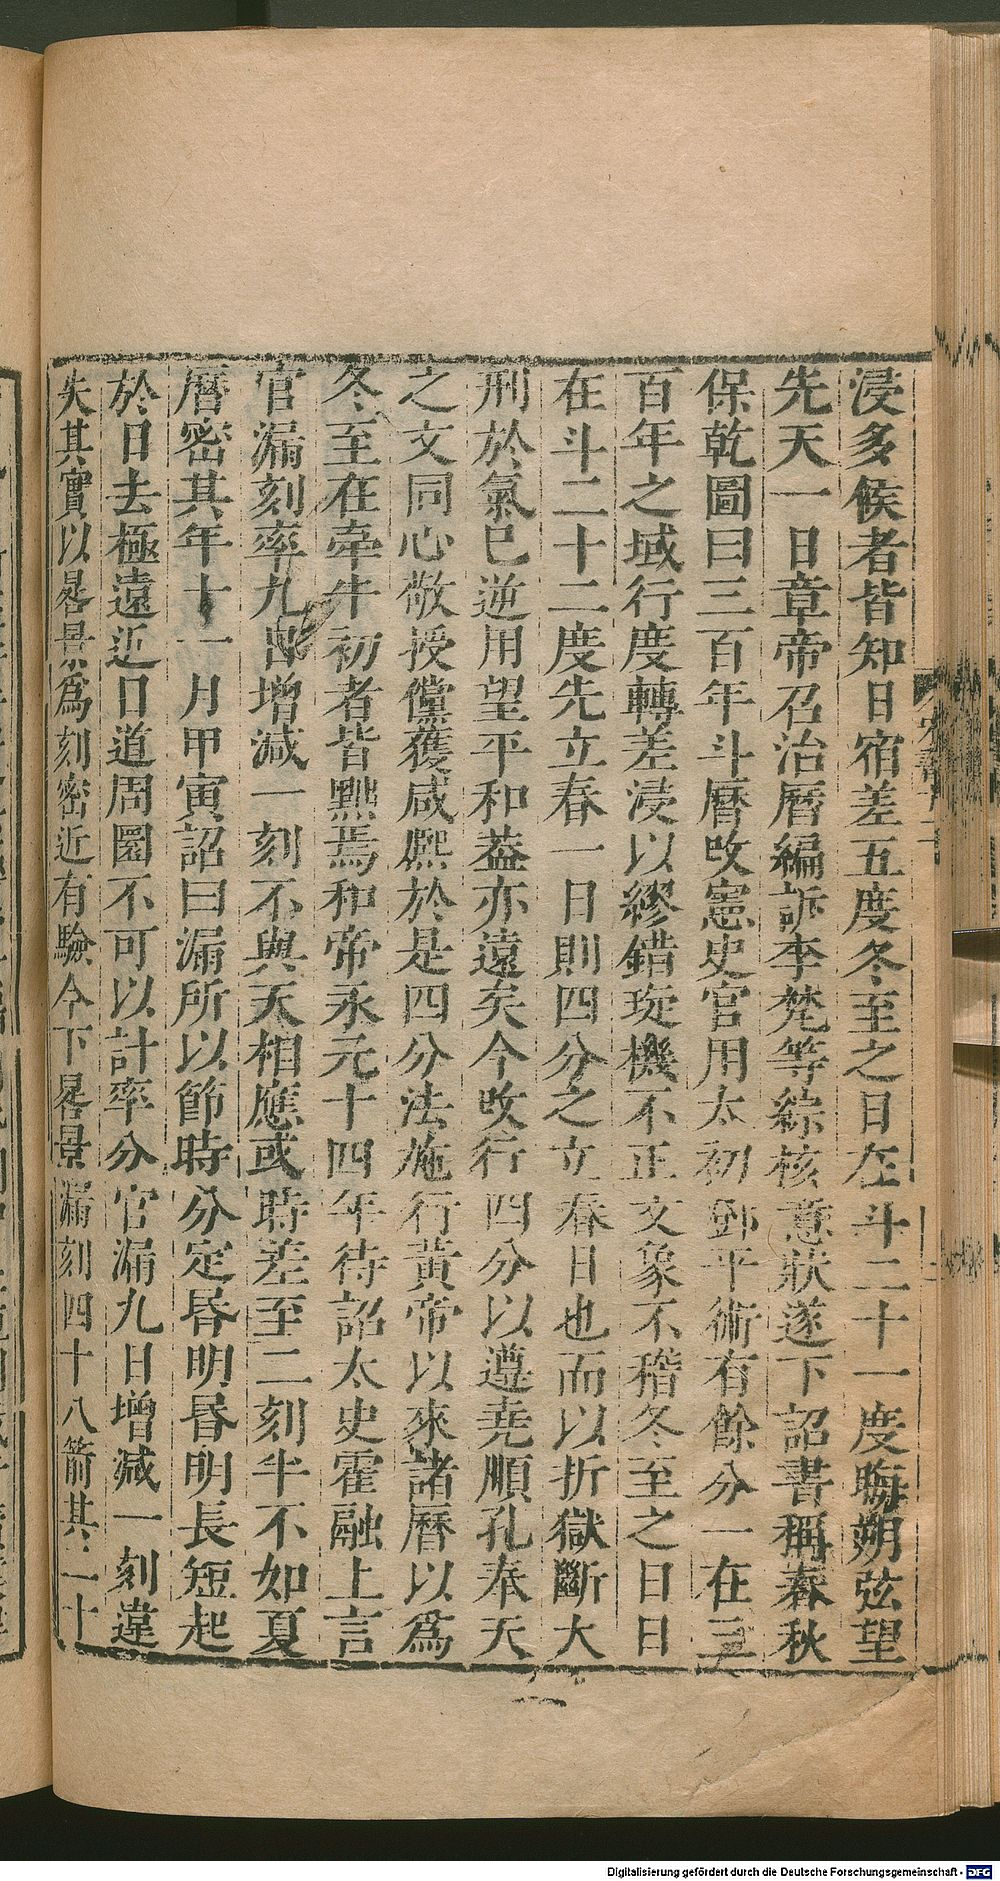 浸多候者皆知日宿差五度冬至之日在斗二十一度晦朔弦望
先天一日章帝召治曆編訢李梵等綜核意狀遂下詔書稱春秋
保乾圖曰三百年斗曆改憲史官用太初鄧平術有餘分一在三
百年之域行度轉差浸以繆錯琁機不正文象不稽冬至之日日
在斗二十二度先立春一日則四分之立春日也而以折獄斷大
刑於氣已逆用望平和葢亦遠矣今改行四分以遵堯順孔奉天
之文同心敬授儻獲咸熙於是四分法施行黃帝以來諸曆以爲
冬至在牽牛初者皆黜焉和帝永元十四年待詔太史霍融上言
官漏刻率九日增減一刻不與天相應或時差至二刻半不如夏
曆密其年十一月甲寅詔曰漏所以節時分定昬明昬明長短起
於日去極遠近日道周圜不可以計率分官漏九日增减一刻違
失其實以晷景爲刻密近有驗今下晷景漏刻四十八箭其二十
宋書十二
Digitalisierung gefördert durch die Deutsche Forschungsgemeinschaft - DFG